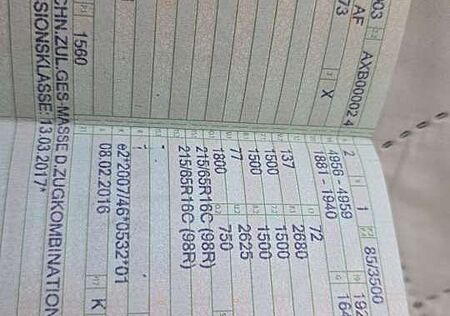 003
AF AXB00002 4 2 1 85/3500
73 4956 - 4959 192
X 1881 - 1940 164
137 72
1500 2680
1500 1500
77 1500
1800 2625
215/65R16C (98R) 750
215/65R16C (98R)
-
-
e2*2007/46*0532*01
08.02.2016 K
1560
CHN.ZUL.GES-MASSE D.ZUGKOMBINATION
SIONSKLASSE: 13.03.2017*